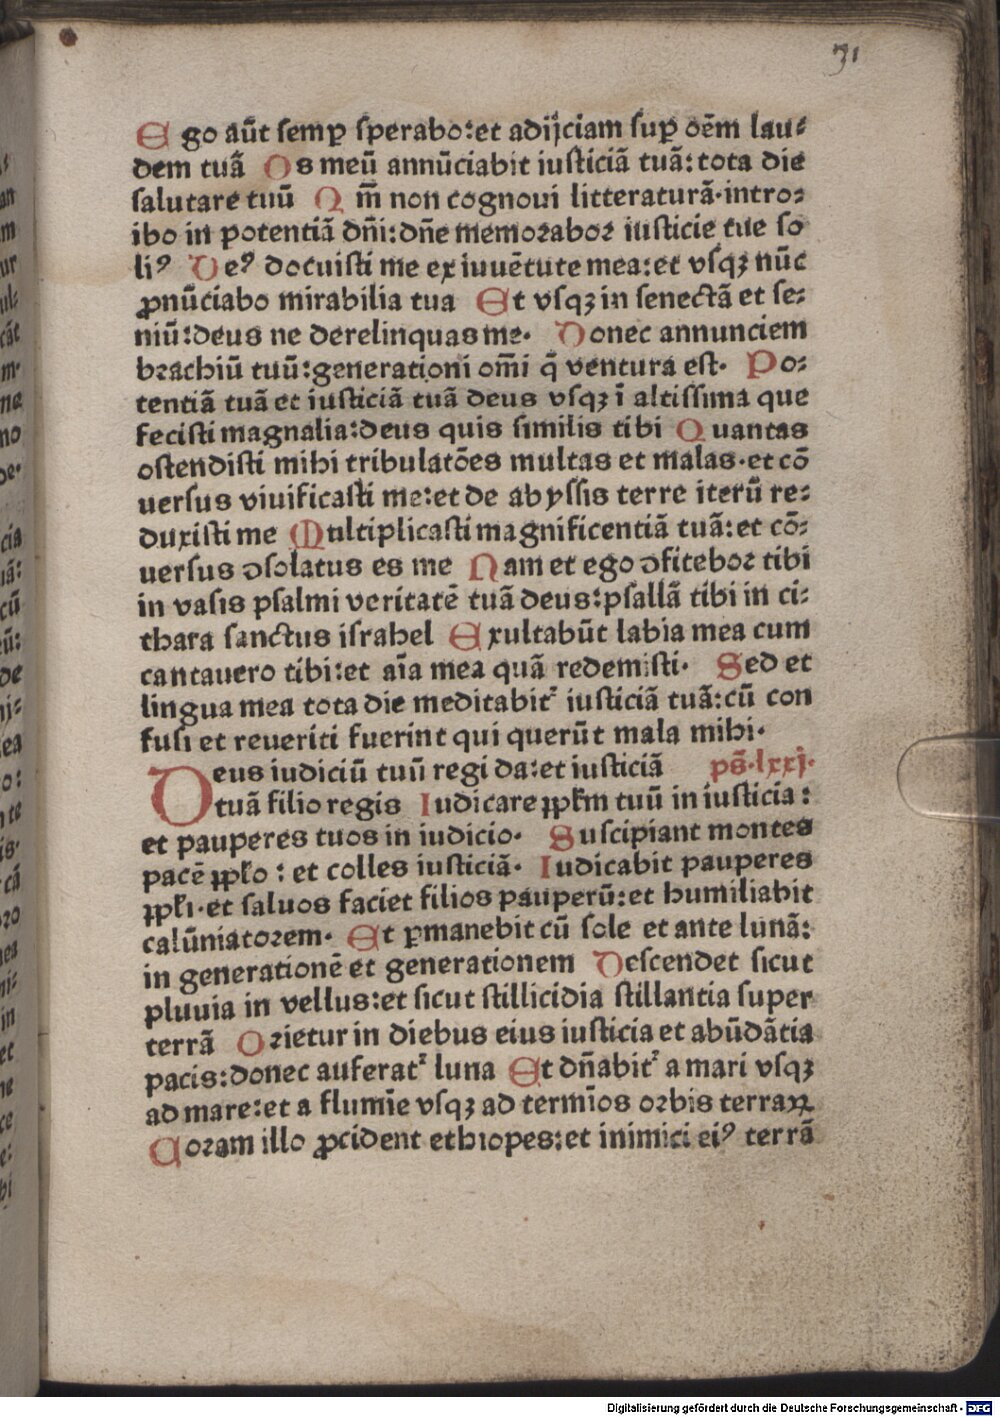 71
Ego aūt semꝑ sperabo:et adijciam suꝑ oēm lau⸗
dem tuā Os meū annūciabit iusticiā tuā:tota die
salutare tuū Qm̄ non cognoui litteraturā·intro⸗
ibo in potentiā dn̄i:dn̄e memorabor iusticie tue so
liꝰ Deꝰ docuisti me ex iuuētute mea:et vsqꝫ nūc
ꝓnūciabo mirabilia tua Et vsqꝫ in senectā et se⸗
niū:deus ne derelinquas me· Donec annunciem
brachiū tuū:generationi om̄i q̄ ventura est· Po⸗
tentiā tuā et iusticiā tuā deus vsqꝫ ī altissima que
fecisti magnalia:deus quis similis tibi Quantas
ostendisti mihi tribulatōes multas et malas·et cō
uersus viuificasti me:et de abyssis terre iterū re⸗
duxisti me Multiplicasti magnificentiā tuā:et cō⸗
uersus ꝯsolatus es me Nam et ego ꝯfitebor tibi
in vasis psalmi veritatē tuā deus:psallā tibi in ci⸗
thara sanctus israhel Exultabūt labia mea cum
cantauero tibi:et aīa mea quā redemisti· Sed et
lingua mea tota die meditabitᷣ iusticiā tuā:cū con
fusi et reueriti fuerint qui querūt mala mihi·
Deus iudiciū tuū regi da:et iusticiā ps̄·lxxj·
tuā filio regis Iudicare ꝓpłm tuū in iusticia:
et pauperes tuos in iudicio· Suscipiant montes
pacē ꝓpło: et colles iusticiā· Iudicabit pauperes
ꝓpłi·et saluos faciet filios pauperū:et humiliabit
calūniatorem· Et ꝑmanebit cū sole et ante lunā:
in generationē et generationem Descendet sicut
pluuia in vellus:et sicut stillicidia stillantia super
terrā Orietur in diebus eius iusticia et abūdātia
pacis:donec auferatᷣ luna Et dn̄abitᷣ a mari vsqꝫ
ad mare:et a flumīe vsqꝫ ad termīos orbis terraꝝ
Coram illo ꝓcident ethiopes:et inimici eiꝰ terrā
Digitalisierung gefördert durch die Deutsche Forschungsgemeinschaft - DFG